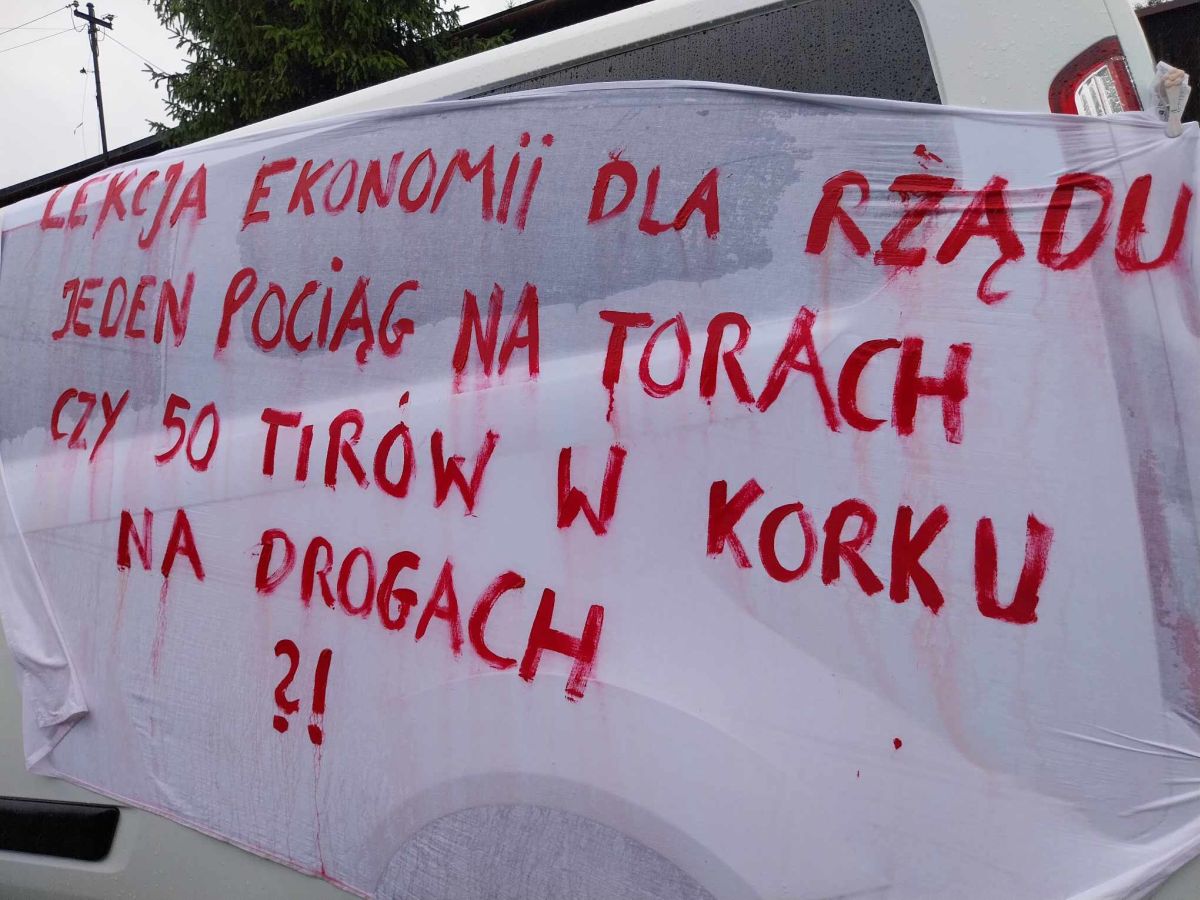 LEKCJA EKONOMII DLA RŻĄDU
JEDEN POCIĄG NA TORACH
CZY 50 TIRÓW W KORKU
NA DROGACH
?!